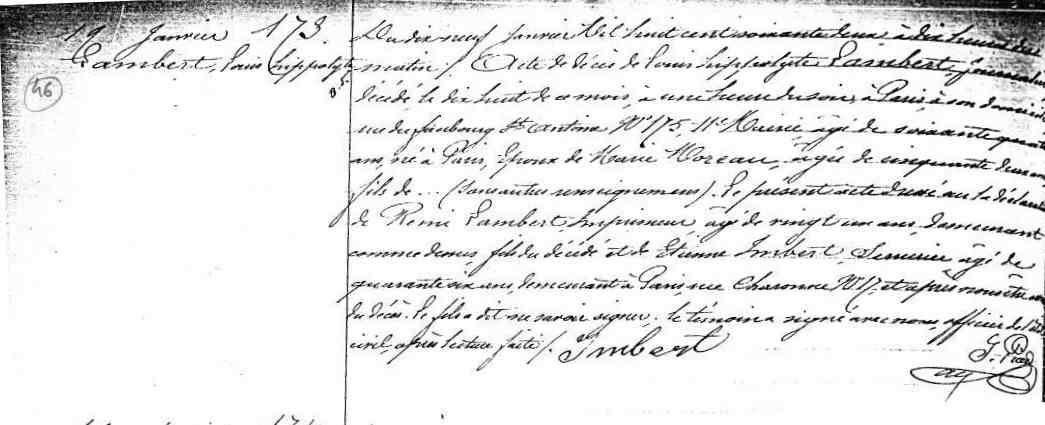 19 Janvier 173.
Lambert, Louis hippolyte
46
Du dix neuf Janvier Mil huit cent soixante deux à dix heures du
matin /. Acte de décès de Louis hippolyte Lambert, journalier
décédé le dix huit de ce mois, à une heure du soir, à Paris, à son domicile
rue du faubourg St Antoine No 175, 11e Mairie, âgé de soixante quatre
ans, né à Paris, Epoux de Marie Moreau, âgée de cinquante deux ans
fils de ... (sans autres renseignemens). Le présent acte dressé sur la déclaration
de Remi Lambert Imprimeur, âgé de vingt un ans, demeurant
comme dessus, fils du décédé et de Etienne Imbert, Serrurier âgé de
quarante six ans, demeurant à Paris, rue Charonne No 17, et après nous être
du décès. Le fils a dit ne savoir signer. Le témoin a signé avec nous, officier de l'état
civil, après lecture faite /. Imbert